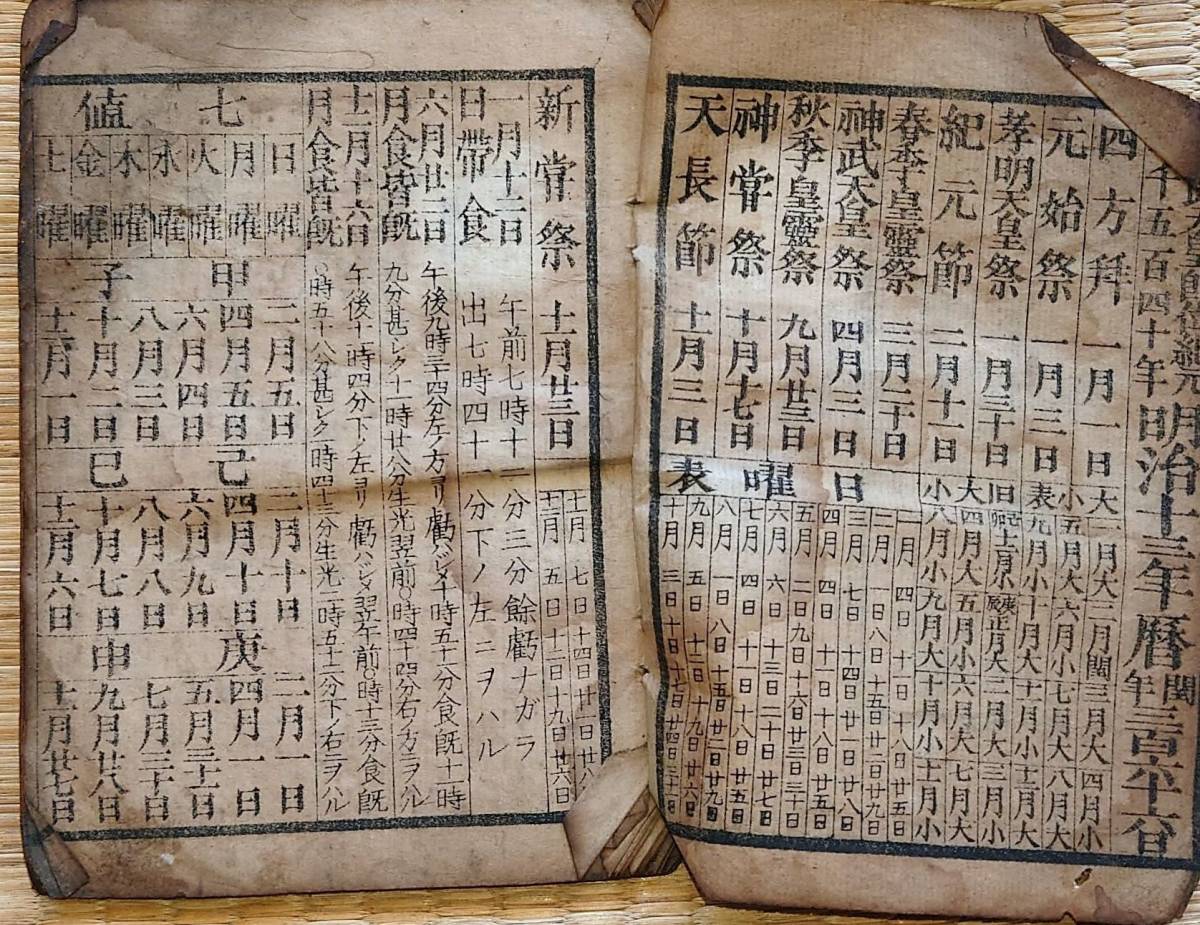 武天皇即位紀元
千五百四十年
明治十三年暦
閏年三百六十六日
四方拜 一月一日
元始祭 一月三日
孝明天皇祭 一月三十日
紀元節 二月十一日
春季皇靈祭 三月二十日
神武天皇祭 四月三日
秋季皇靈祭 九月廿三日
神甞祭 十月十七日
天長節 十一月三日
大 一月大 二月閏 三月大 四月小
小 五月大 六月小 七月大 八月大
表 九月小 十月大 十一月小 十二月大
旧 十二月小 庚辰正月大 二月大 三月小
大 四月大 五月小 六月大 七月大
小 八月小 九月大 十月小 十一月小
日曜表
一月 四日 十一日 十八日 廿五日
二月 一日 八日 十五日 廿二日 廿九日
三月 七日 十四日 廿一日 廿八日
四月 四日 十一日 十八日 廿五日
五月 二日 九日 十六日 廿三日 三十日
六月 六日 十三日 二十日 廿七日
七月 四日 十一日 十八日 廿五日
八月 一日 八日 十五日 廿二日 廿九日
九月 五日 十二日 十九日 廿六日
十月 三日 十日 十七日 廿四日 三十一日
新甞祭 十一月廿三日
十一月 七日 十四日 廿一日 廿八
十二月 五日 十二日 十九日 廿六日
一月十二日 日帶食
午前七時十一分三分餘虧ナガラ
出七時四十一分下ノ左ニヲハル
六月廿二日 月食皆既
午後九時三十四分左ノ方ヨリ虧ハジメ十時五十一分食既十一時
九分甚シク十一時廿八分生光翌前〇時四十四分右ノ方ニヲハル
十二月十六日 月食皆既
午後十一時四分下ノ左ヨリ虧ハジメ翌午前〇時十三分食既
〇時五十八分甚シク一時四十三分生光二時五十二分下ノ右ニヲハル
七値
日曜 月曜 火曜 水曜 木曜 金曜 土曜
甲子
二月五日
四月五日
六月四日
八月三日
十月二日
十二月一日
己巳
二月十日
四月十日
六月九日
八月八日
十月七日
十二月六日
庚申
二月一日
四月一日
五月三十一日
七月三十日
九月廿八日
十一月廿七日